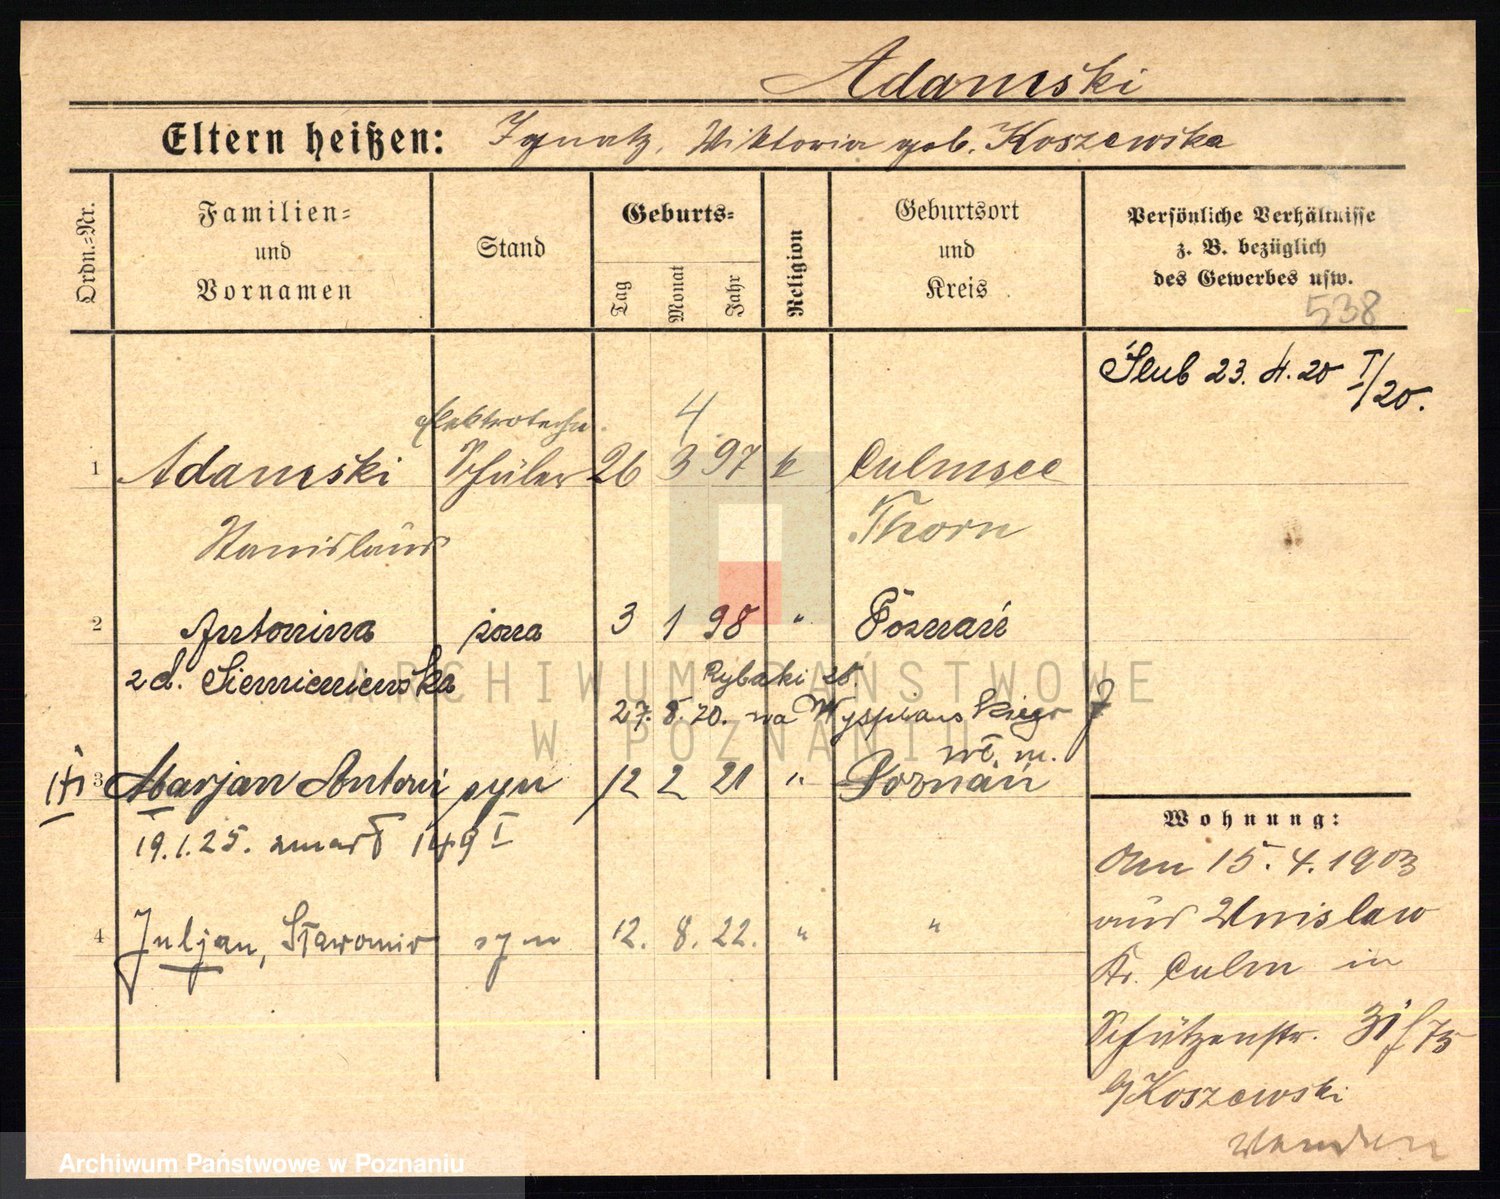 Adamski
Eltern heißen: Ignatz, Wiktoria geb. Koszewska
Ordn.=Nr.
Familien=
und
Vornamen
Stand
Geburts=
Tag
Monat
Jahr
Religion
Geburtsort
und
Kreis
Persönliche Verhältnisse
z. B. bezüglich
des Gewerbes usw.
538
Ślub 23. 4. 20 I/20.
Elektrotechn.
4
1 Adamski Schüler 26 3 97 k Culmsee
Stanislaus Thorn
2 Antonina żona 3 1 98 " Poznań
z d. Siemieniewska
Rybaki 25.
27. 8. 20. na Wyspiańskiego 7
wł. m.
3 Marjan Antoni syn 12 2 21 " Poznań
19.1.25. zmarł 149 I
4 Juljan, Sławomir syn 12. 8. 22. " "
Wohnung:
Am 15.4.1903
aus Unislaw
Kr. Culm in
Schützenstr. 31
b/Koszewski
ARCHIWUM PAŃSTWOWE
W POZNANIU
Archiwum Państwowe w Poznaniu